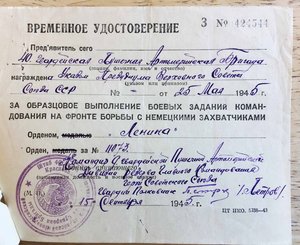 ВРЕМЕННОЕ УДОСТОВЕРЕНИЕ
З № 424544
Пред'явитель сего
40 Гвардейская Пушечная Артиллерийская Бригада
награждена Указом Президиума Верховного Совета
Союза ССР № - от 25 Мая 1945 г.
ЗА ОБРАЗЦОВОЕ ВЫПОЛНЕНИЕ БОЕВЫХ ЗАДАНИЙ КОМАНДОВАНИЯ НА ФРОНТЕ БОРЬБЫ С НЕМЕЦКИМИ ЗАХВАТЧИКАМИ
Орденом, медалью „Ленина“
Орден, медаль за №
Командир Гвардейской Пушечной Артиллерийской
дивизии Резерва Главного Командования
Герой Советского Союза
Гвардии Полковник (Петров)
15 1945 г.